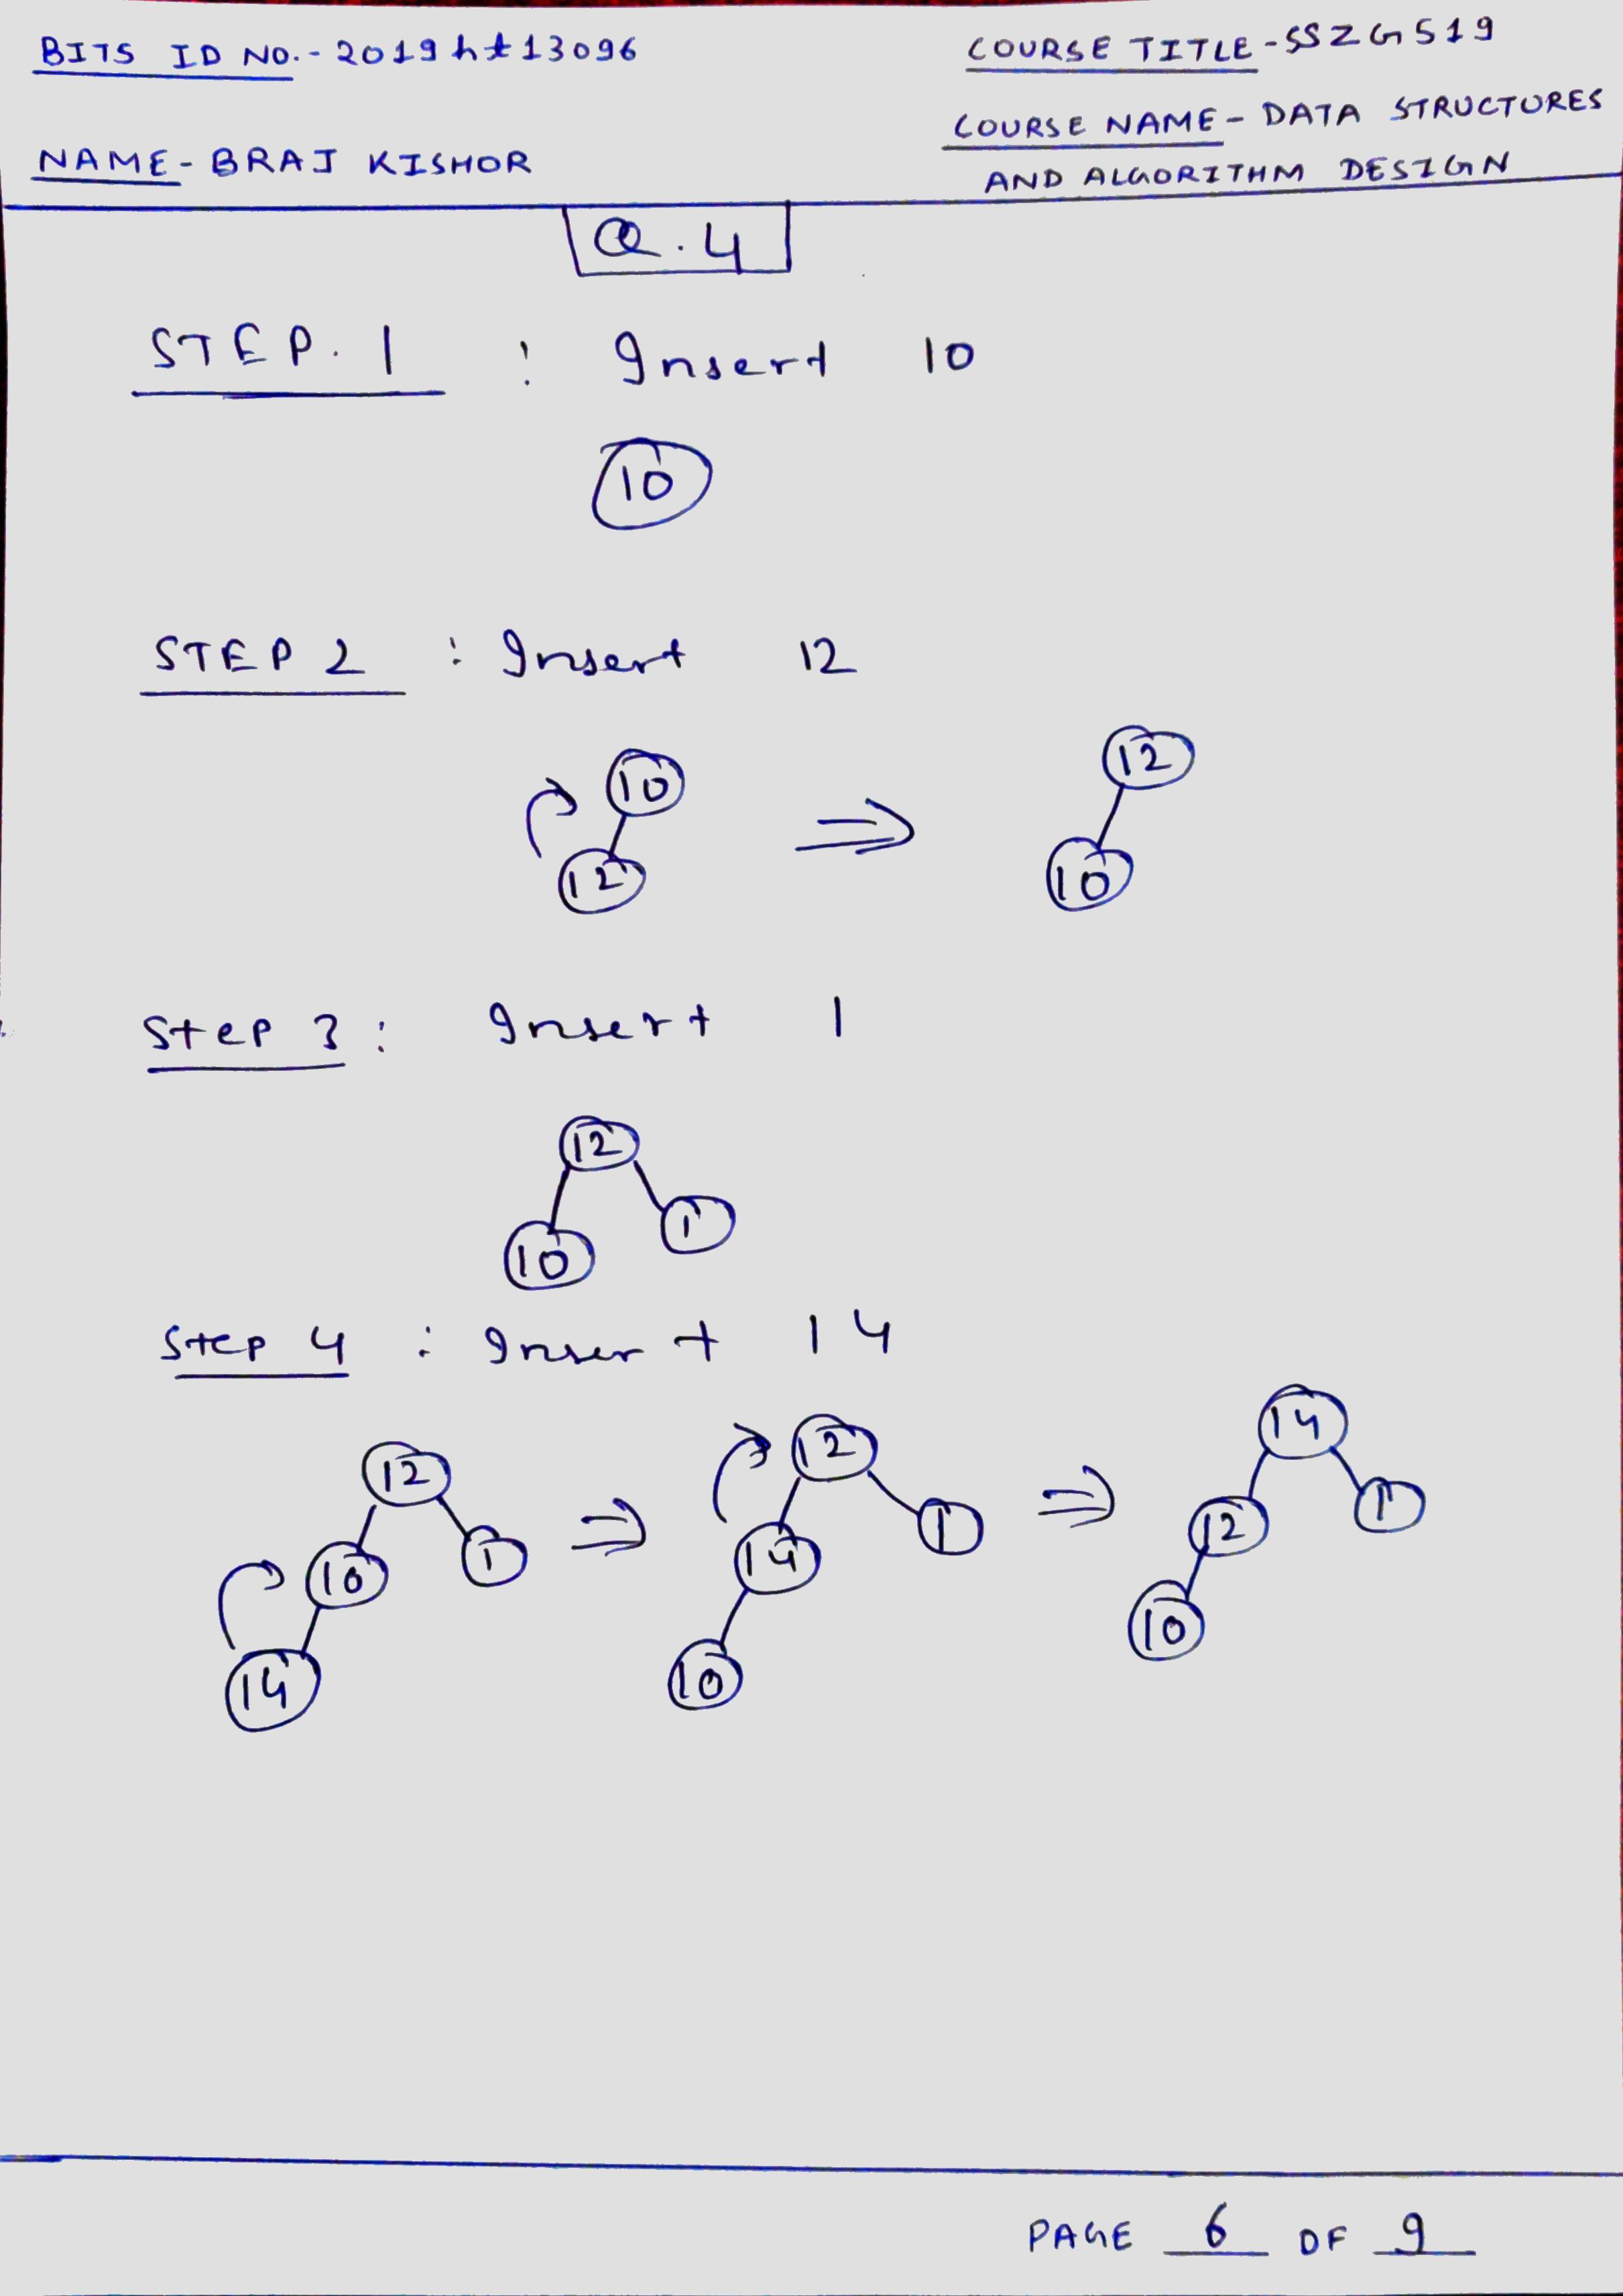 BITS ID NO.- 2019ht13096
COURSE TITLE - SSZG519
COURSE NAME - DATA STRUCTURES
AND ALGORITHM DESIGN
NAME - BRAJ KISHOR
Q.4
STEP. 1 : Insert 10
10
STEP 2 : Insert 12
10 ⇒ 12
12 10
Step 3 : Insert 1
12
10 1
Step 4 : Insert 14
12 ⇒ 12 ⇒ 14
10 1 14 1 12 1
14 10 10
PAGE 6 OF 9